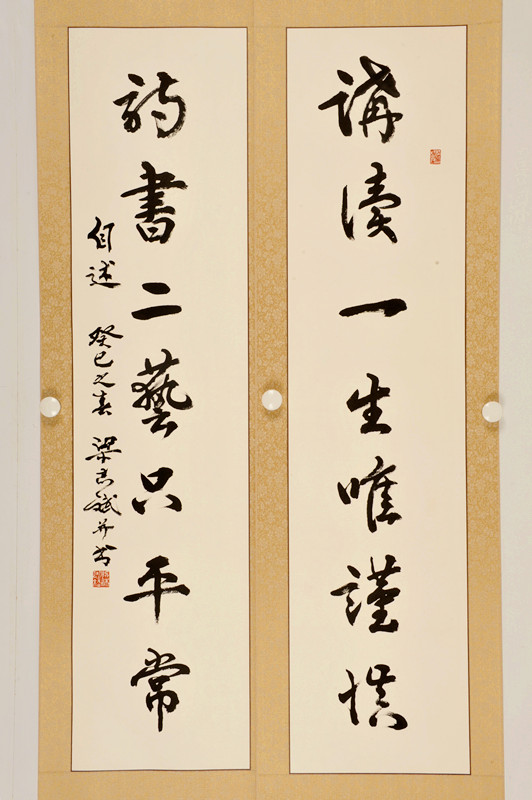 講讀一生唯謹慎
詩書二藝只平常
自述 癸巳之春 梁 并書